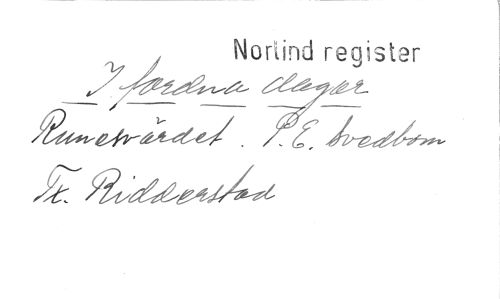 Norlind register
I fordna dagar
Runesvärdet. P. E. Svedbom
Tx. Ridderstad